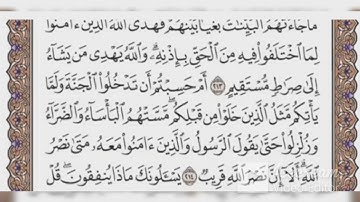 مَا جَآءَتْهُمُ ٱلْبَيِّنَٰتُ بَغْيًۢا بَيْنَهُمْ ۖ فَهَدَى ٱللَّهُ ٱلَّذِينَ ءَامَنُوا۟
لِمَا ٱخْتَلَفُوا۟ فِيهِ مِنَ ٱلْحَقِّ بِإِذْنِهِۦ ۗ وَٱللَّهُ يَهْدِى مَن يَشَآءُ
إِلَىٰ صِرَٰطٍ مُّسْتَقِيمٍ ٢١٣ أَمْ حَسِبْتُمْ أَن تَدْخُلُوا۟ ٱلْجَنَّةَ وَلَمَّا
يَأْتِكُم مَّثَلُ ٱلَّذِينَ خَلَوْا۟ مِن قَبْلِكُم ۖ مَّسَّتْهُمُ ٱلْبَأْسَآءُ وَٱلضَّرَّآءُ
وَزُلْزِلُوا۟ حَتَّىٰ يَقُولَ ٱلرَّسُولُ وَٱلَّذِينَ ءَامَنُوا۟ مَعَهُۥ مَتَىٰ نَصْرُ
ٱللَّهِ ۗ أَلَآ إِنَّ نَصْرَ ٱللَّهِ قَرِيبٌ ٢١٤ يَسْـَٔلُونَكَ مَاذَا يُنفِقُونَ ۖ قُلْ